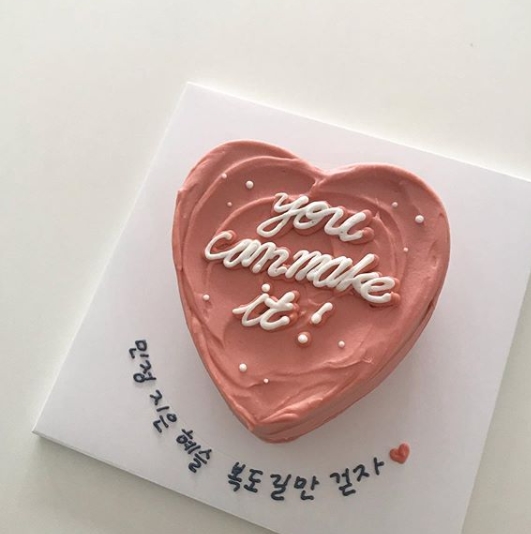 you
can make
it!
지은 혜슬 복도길만 걷자